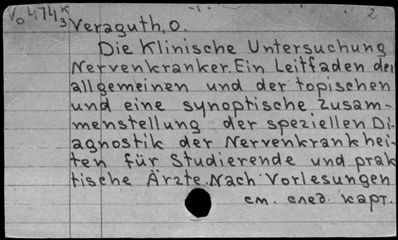 V₀ 474 K/3
2
Veraguth, O.
Die Klinische Untersuchung
Nervenkranker. Ein Leitfaden der
allgemeinen und der topischen
und eine synoptische Zusam-
menstellung der speziellen Di-
agnostik der Nervenkrankhei-
ten für Studierende und prak
tische Ärzte. Nach Vorlesungen
см. след. карт.